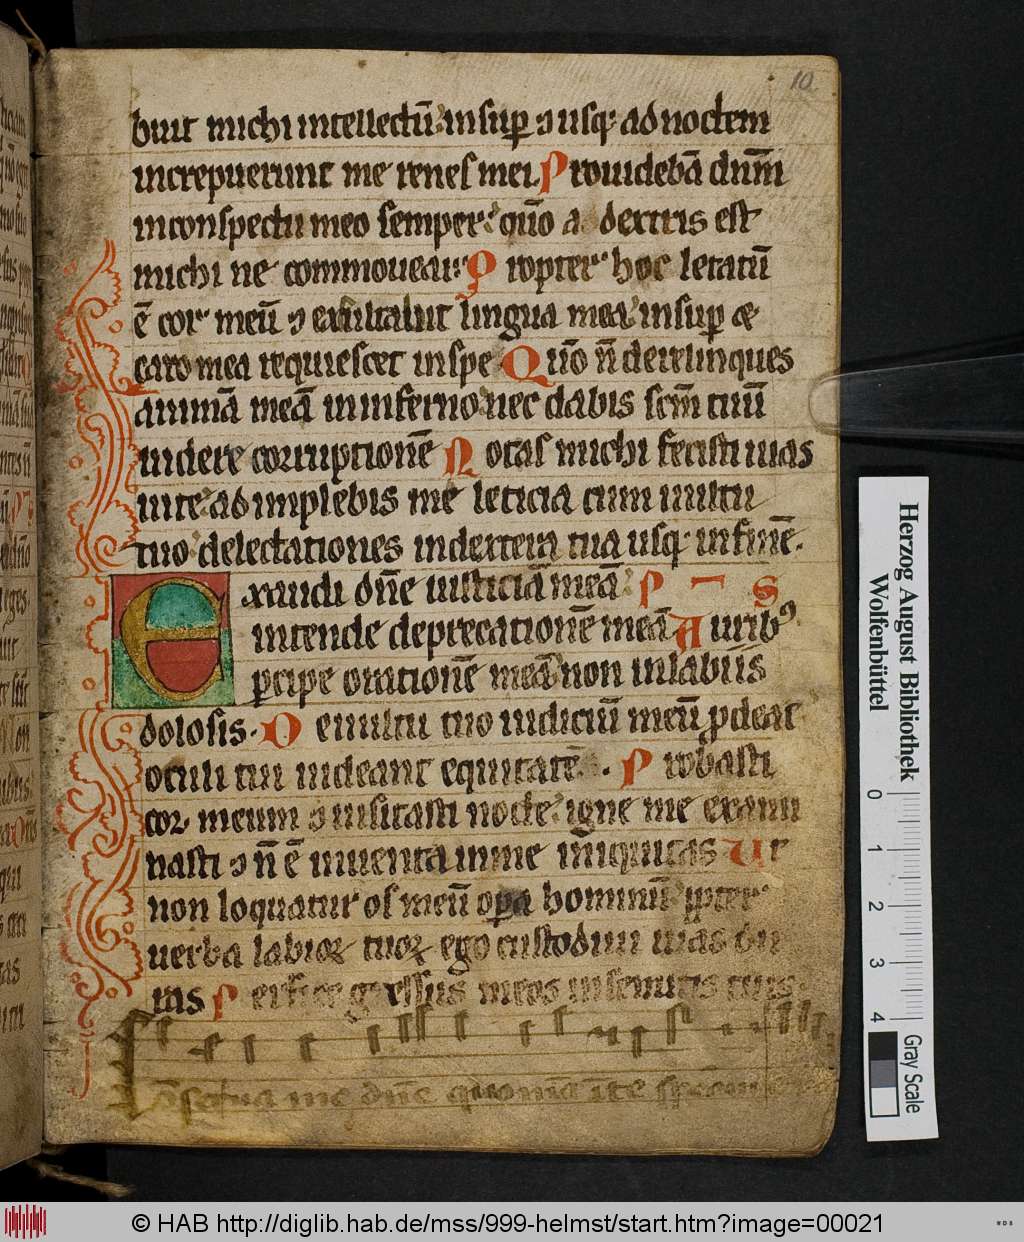 10
buit michi intellectū: insuꝑ ⁊ usq; ad noctem
increpuerunt me renes mei. Prouidebā dn̄m
inconspectu meo semper: qm̄o a dextris est
michi ne commouear: Propter hoc letatū
ē cor meū ⁊ exultauit lingua mea: insuꝑ &
caro mea requiescet inspe Quō n̄ derelinques
animā meā ininferno: nec dabis scm̄ tuū
uidere corruptionē Notas michi fecisti uias
uite: adimplebis me leticia cum uultu
tuo: delectationes indextera tua usq; infinē.
Exaudi dn̄e iusticiā meā: P S
intende deprecationē meā Aurib9
ꝑcipe orationē meā: non inlabiis
dolosis. De uultu tuo iudiciū meū ꝓdeat
oculi tui uideant equitatē. Probasti
cor meum ⁊ uisitasti nocte: igne me exami
nasti ⁊ n̄ ē inuenta inme iniquitas Ut
non loquatur os meū oꝑa hominū: ꝓpter
uerba labioꝝ tuoꝝ ego custodiui uias du
ras Perfice gressus meos insemitis tuis
salua me dn̄e quonia
Herzog August Bibliothek
Wolfenbüttel
0 1 2 3 4
Gray Scale
© HAB http://diglib.hab.de/mss/999-helmst/start.htm?image=00021